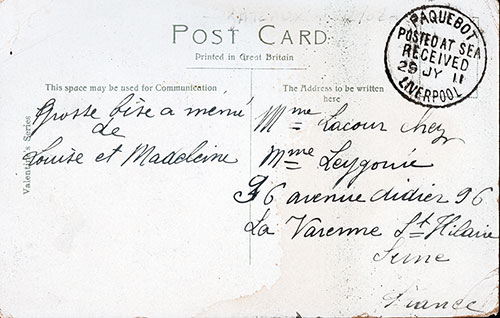 POST CARD
Printed in Great Britain
PAQUEBOT
POSTED AT SEA
RECEIVED
29 JY 11
LIVERPOOL
This space may be used for Communication
The Address to be written
here
Valentine's Series
Grosse bise a mémé
de
Louise et Madeleine
Mme Lacour chez
Mme Leygonie
96 avenue didier 96
La Varenne St Hilaire
Seine
France